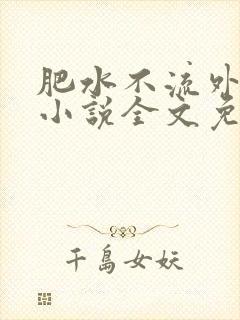 肥水不流外
小說全文免
千島女妖